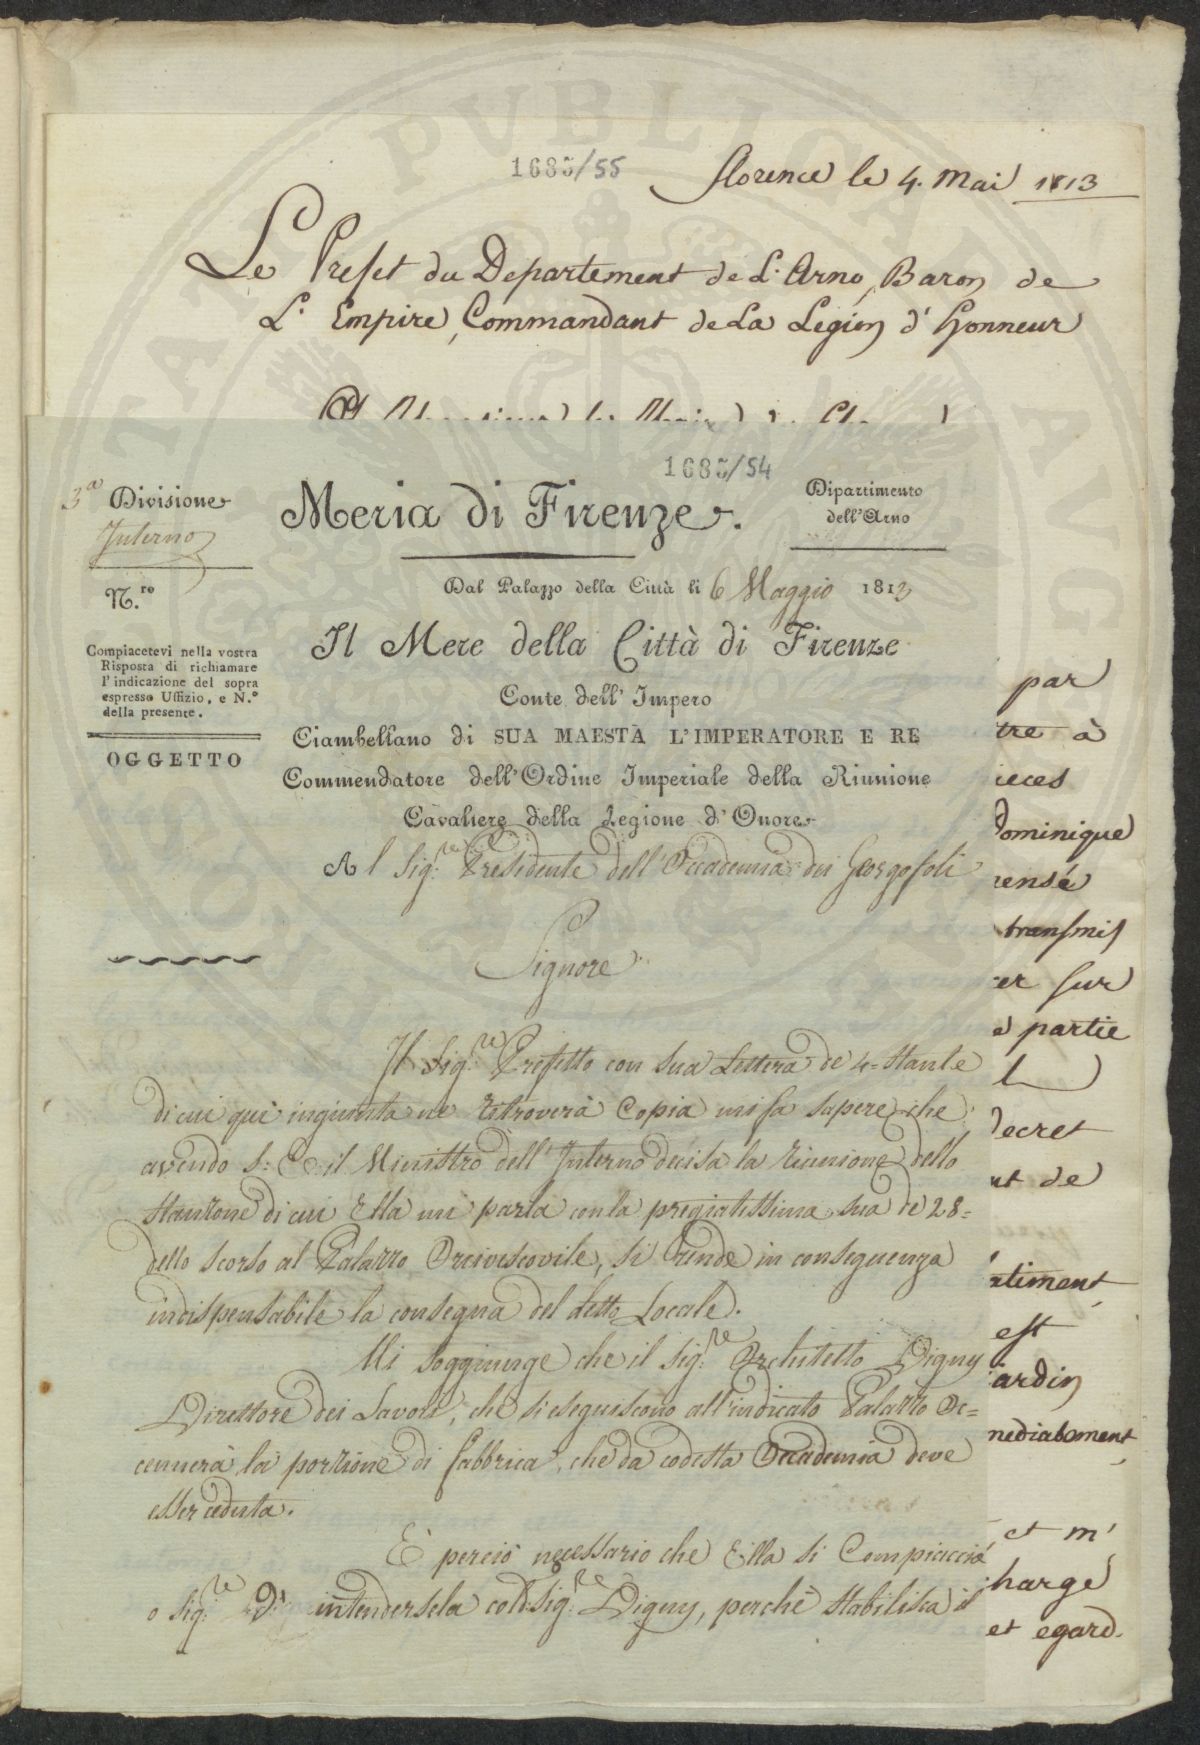 1685/55
Florence le 4. Mai 1813
Le Prefet du Departement de L'Arno, Baron de
L'Empire, Commandant de La Legion d'Honneur
1685/54
3ª Divisione
Interno
N.ro
Compiacetevi nella vostra
Risposta di richiamare
l'indicazione del sopra
espresso Uffizio, e N.°
della presente.
OGGETTO
Meria di Firenze.
Dipartimento
dell'Arno
Dal Palazzo della Città li 6 Maggio 1813
Il Mere della Città di Firenze
Conte dell'Impero
Ciambellano di SUA MAESTÀ L'IMPERATORE E RE
Commendatore dell'Ordine Imperiale della Riunione
Cavaliere della Legione d'Onore
Al Sig.re Presidente dell'Accademia dei Georgofoli
Signore
Il Sig.re Prefetto con sua Lettera de 4 Stante
di cui quì ingiunta ne ritroverà Copia mi fa sapere che
avendo S: E: il Ministro dell'Interno decisa la riunione dello
Stanzone di cui Ella mi parla con la pregiatissima sua de 28=
dello scorso al Palazzo Arcivescovile, si rende in conseguenza
indispensabile la consegna del detto Locale.
Mi soggiunge che il Sig.re Architetto Digny
Direttore dei Lavori, che si eseguiscono all'indicato Palazzo Ac=
cennerà la porzione di fabbrica, che da codesta Accademia deve
esser ceduta.
È perciò necessario che Ella si Compiaccia
o Sig.re Di intendersela col Sig.re Digny, perchè stabilisca il
par
tre à
ieces
Dominique
pensé
transmis
er sur
partie
Decret
nt de
atiment
est
Jardin
mediatement
et m'
harge
et egard.